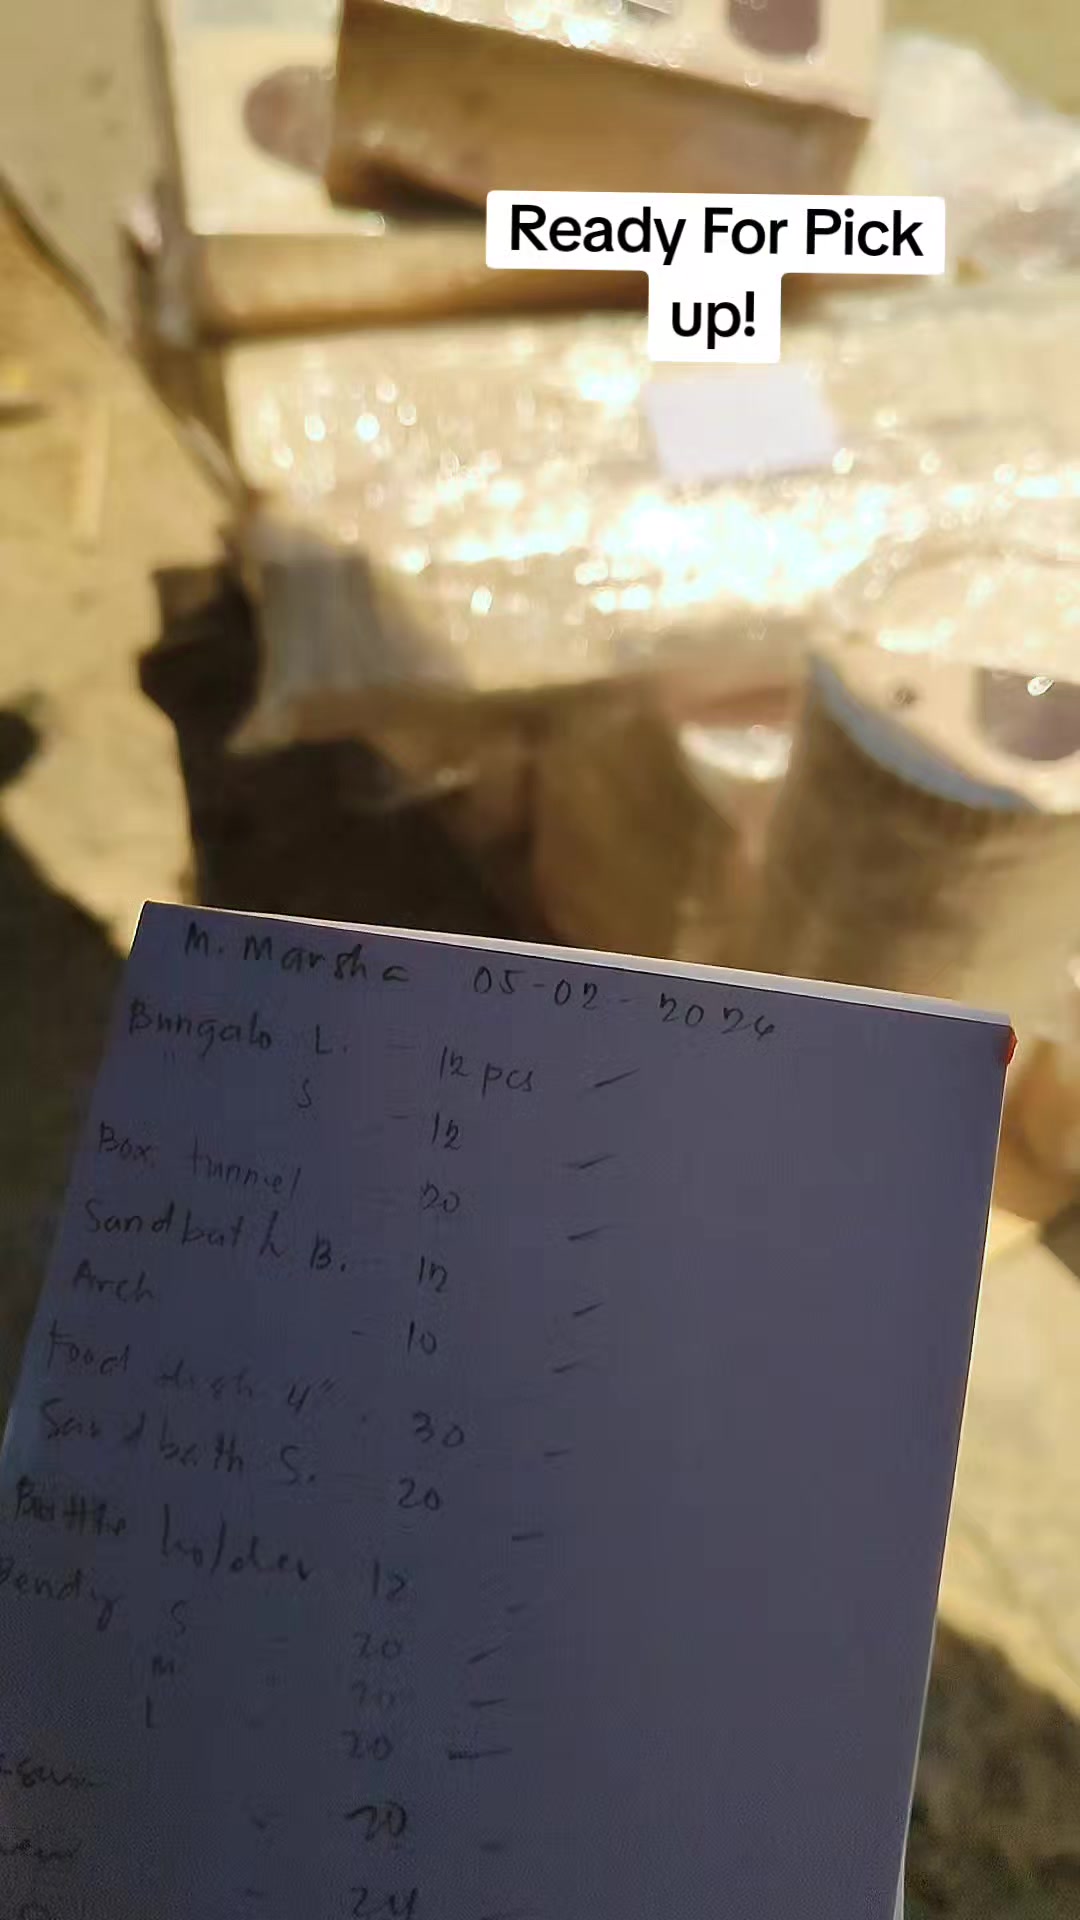 Ready For Pick
up!
M. Marsha 05-02-2024
Bungalo L. - 12 pcs
S - 12
Box tunnel - 20
Sandbath B. - 12
Arch - 10
Food dish 4" - 30
Sandbath S. - 20
Bottle holder 12
Bendy S - 20
M - 20
L - 20
20
24